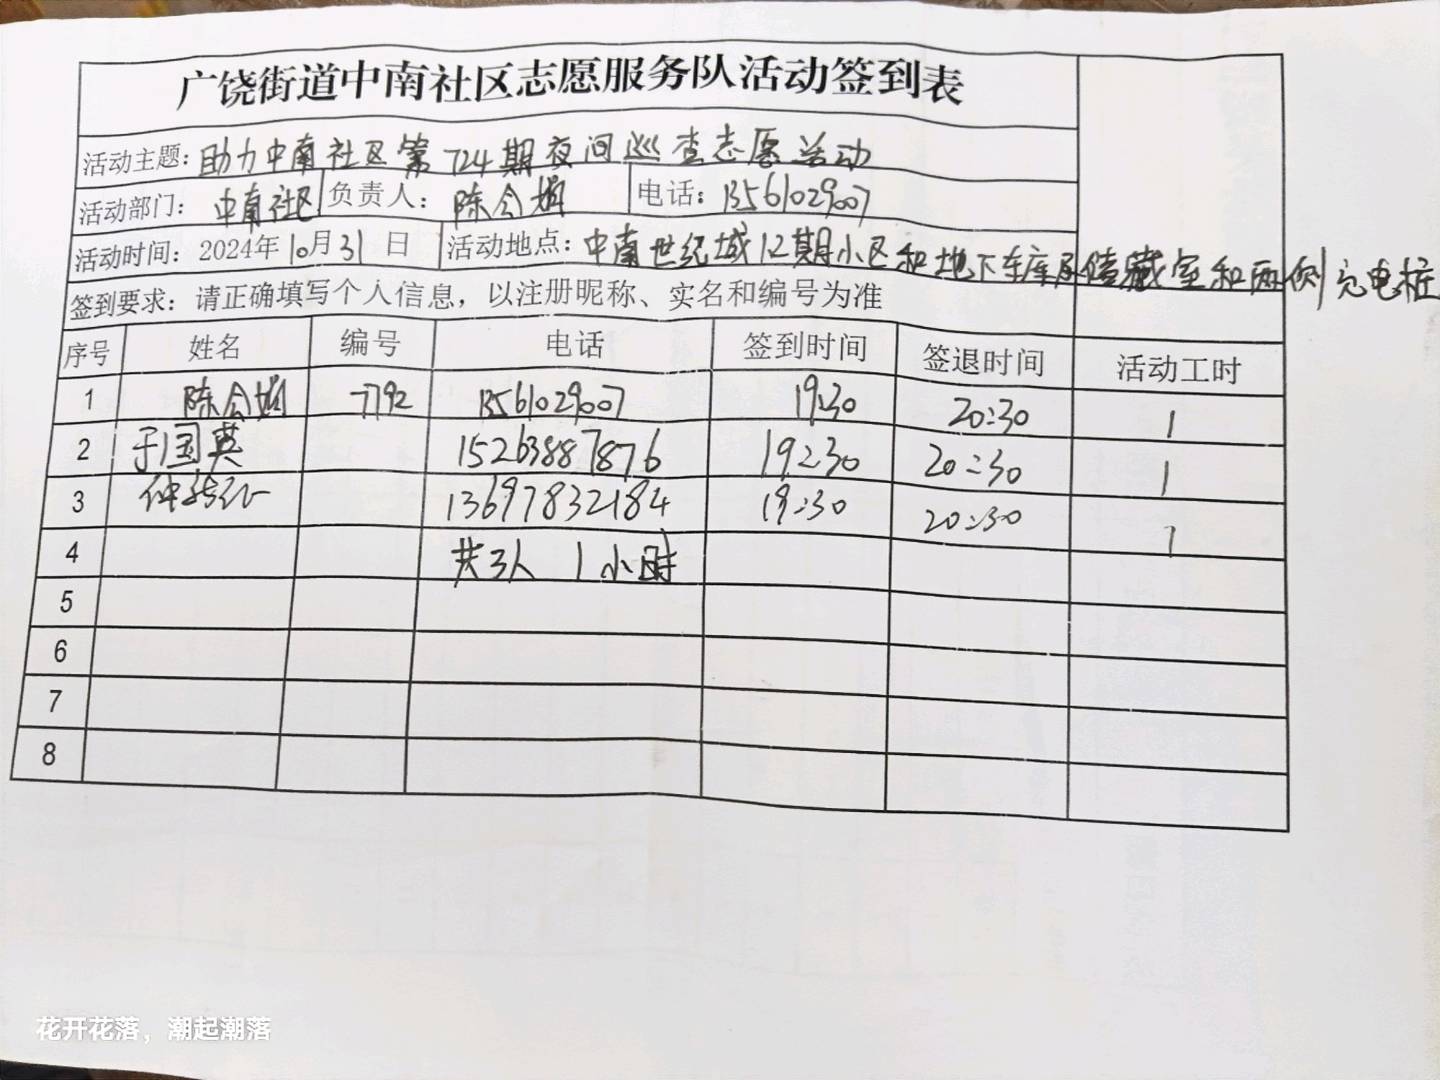 广饶街道中南社区志愿服务队活动签到表
活动主题：助力中南社区第724期夜间巡查志愿活动
活动部门： 中南社区 负责人： 陈令娟 电话：13561029007
活动时间：2024年10月31日 活动地点：中南世纪城12期小区和地下车库及储藏室和两侧充电桩
签到要求：请正确填写个人信息，以注册昵称、实名和编号为准
序号 姓名 编号 电话 签到时间 签退时间 活动工时
1 陈令娟 7792 13561029007 19:30 20:30 1
2 于国英 15263887876 19:30 20:30 1
3 13697832184 19:30 20:30 1
4 共3人 1小时
5
6
7
8
花开花落，潮起潮落